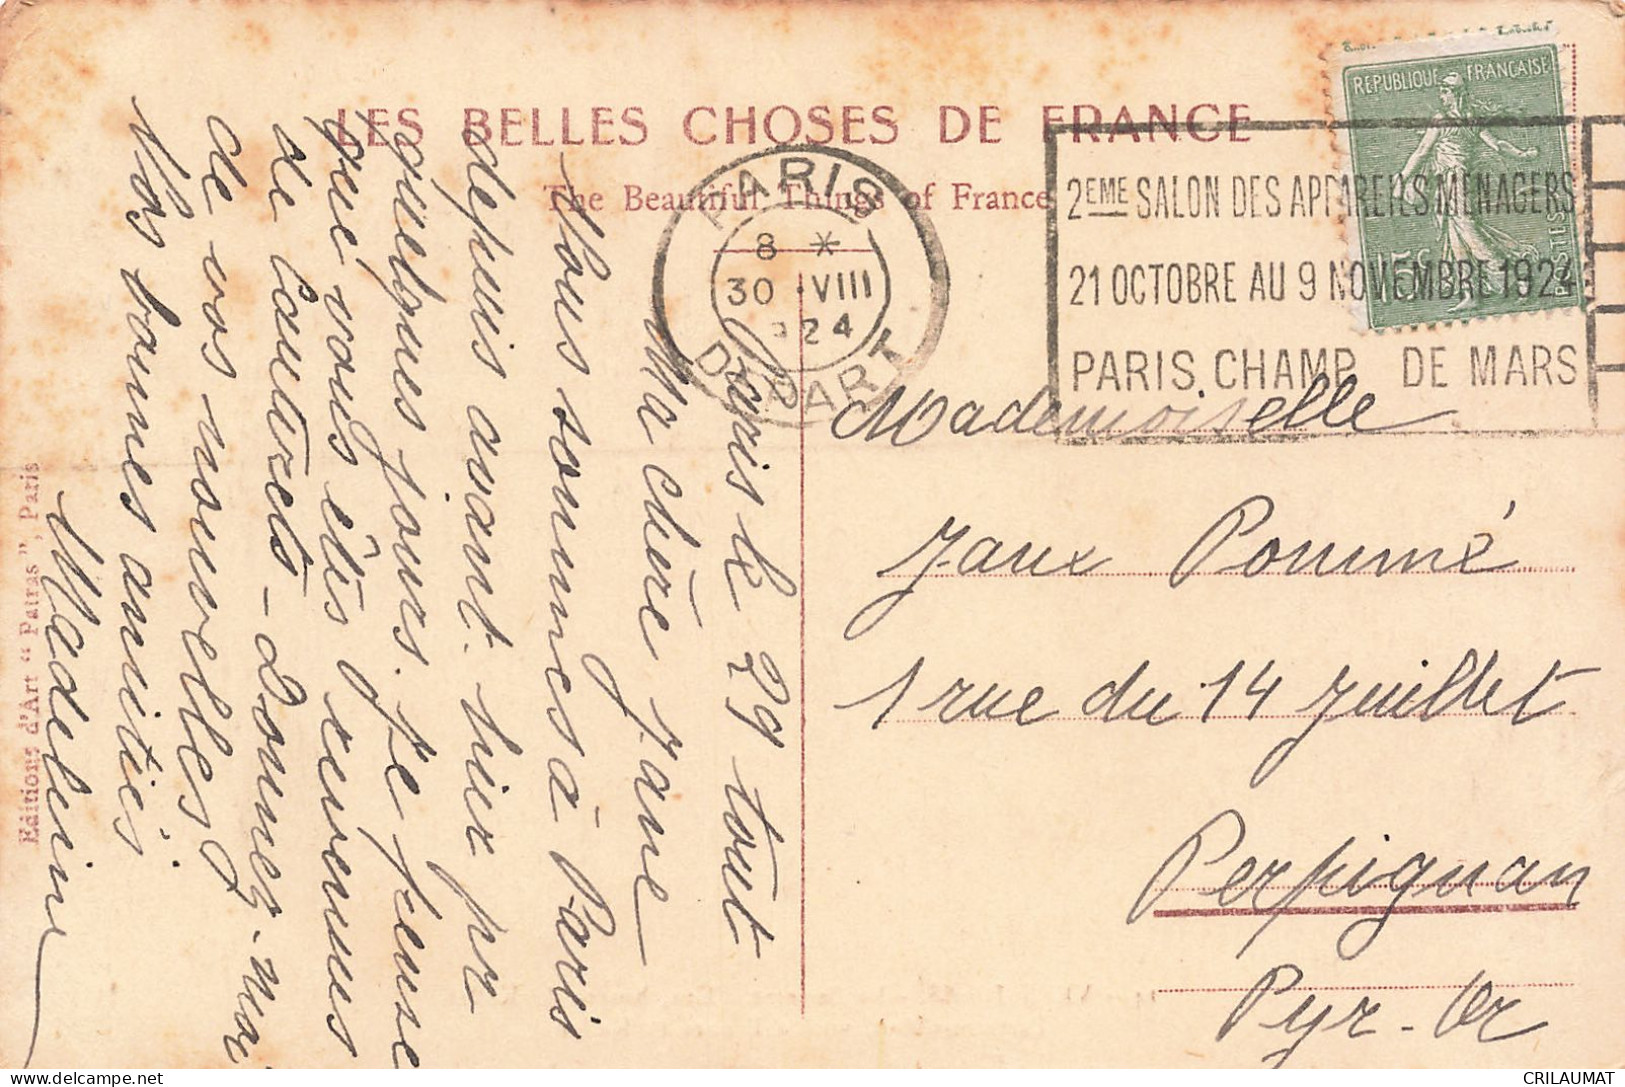 LES BELLES CHOSES DE FRANCE
The Beautiful Things of France
PARIS
8 *
30 VIII
24
DEPART
2EME SALON DES APPAREILS MENAGERS
21 OCTOBRE AU 9 NOVEMBRE 1924
PARIS. CHAMP DE MARS
REPUBLIQUE FRANÇAISE
15c
POSTES
Paris le 29 tout
Ma chère Jane
Nous sommes à Paris
depuis avant-hier pr
quelques jours. Je pense
que vous êtes revenues
de Cauterets - Donnez-moi
de vos nouvelles
Vos bonnes amitiés
Madeleine
Mademoiselle
Jane Pommé
1 rue du 14 Juillet
Perpignan
Pyr-Or
Editions d'Art “ Patras ”, Paris
CRILAUMAT